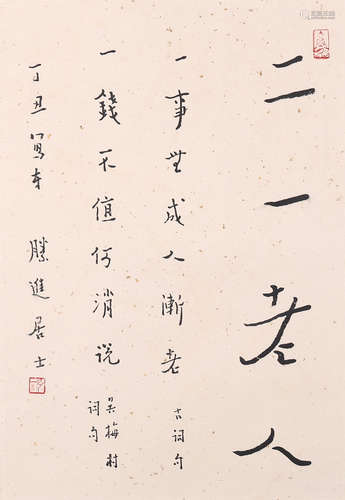 二一老人
一事無成人漸老 古詞句
一錢不值何消說 吳梅村詞句
丁丑寫奉 勝進居士